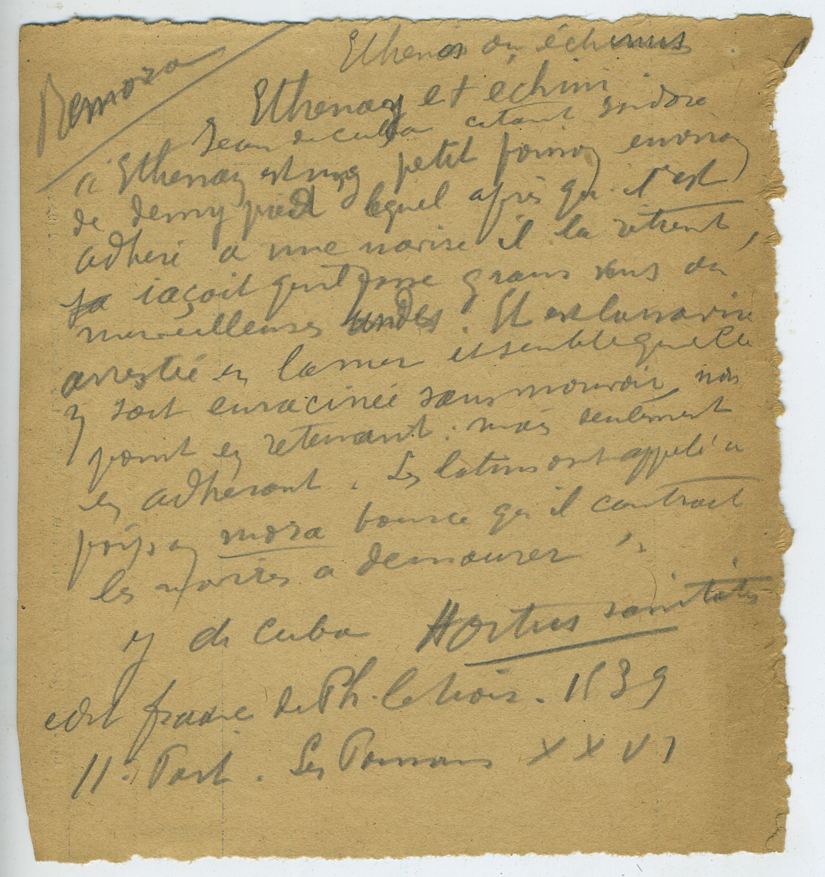 Remora
Ethenas ou échinus
Ethenay et échini
Jean de Cuba citant Isidore
Ethenay est ung petit poisson environ
de demy pied lequel après qu'il s'est
adheré a une navire il la retient,
ia iaçoit quil grans vens ou
merveilleuses undes. Et est la navire
arrestée en la mer et semble quelle
y soit enracinée sans mouvoir, non
point en retenant: mais seulement
en adherant. Les latins ont appelé ce
poisson mora pource qu'il contraet
les navires a demourer
J de Cuba Hortus sanitatis
edit franc de Ph. le Noir. 1539
II. Part. Les Poissons XXVI